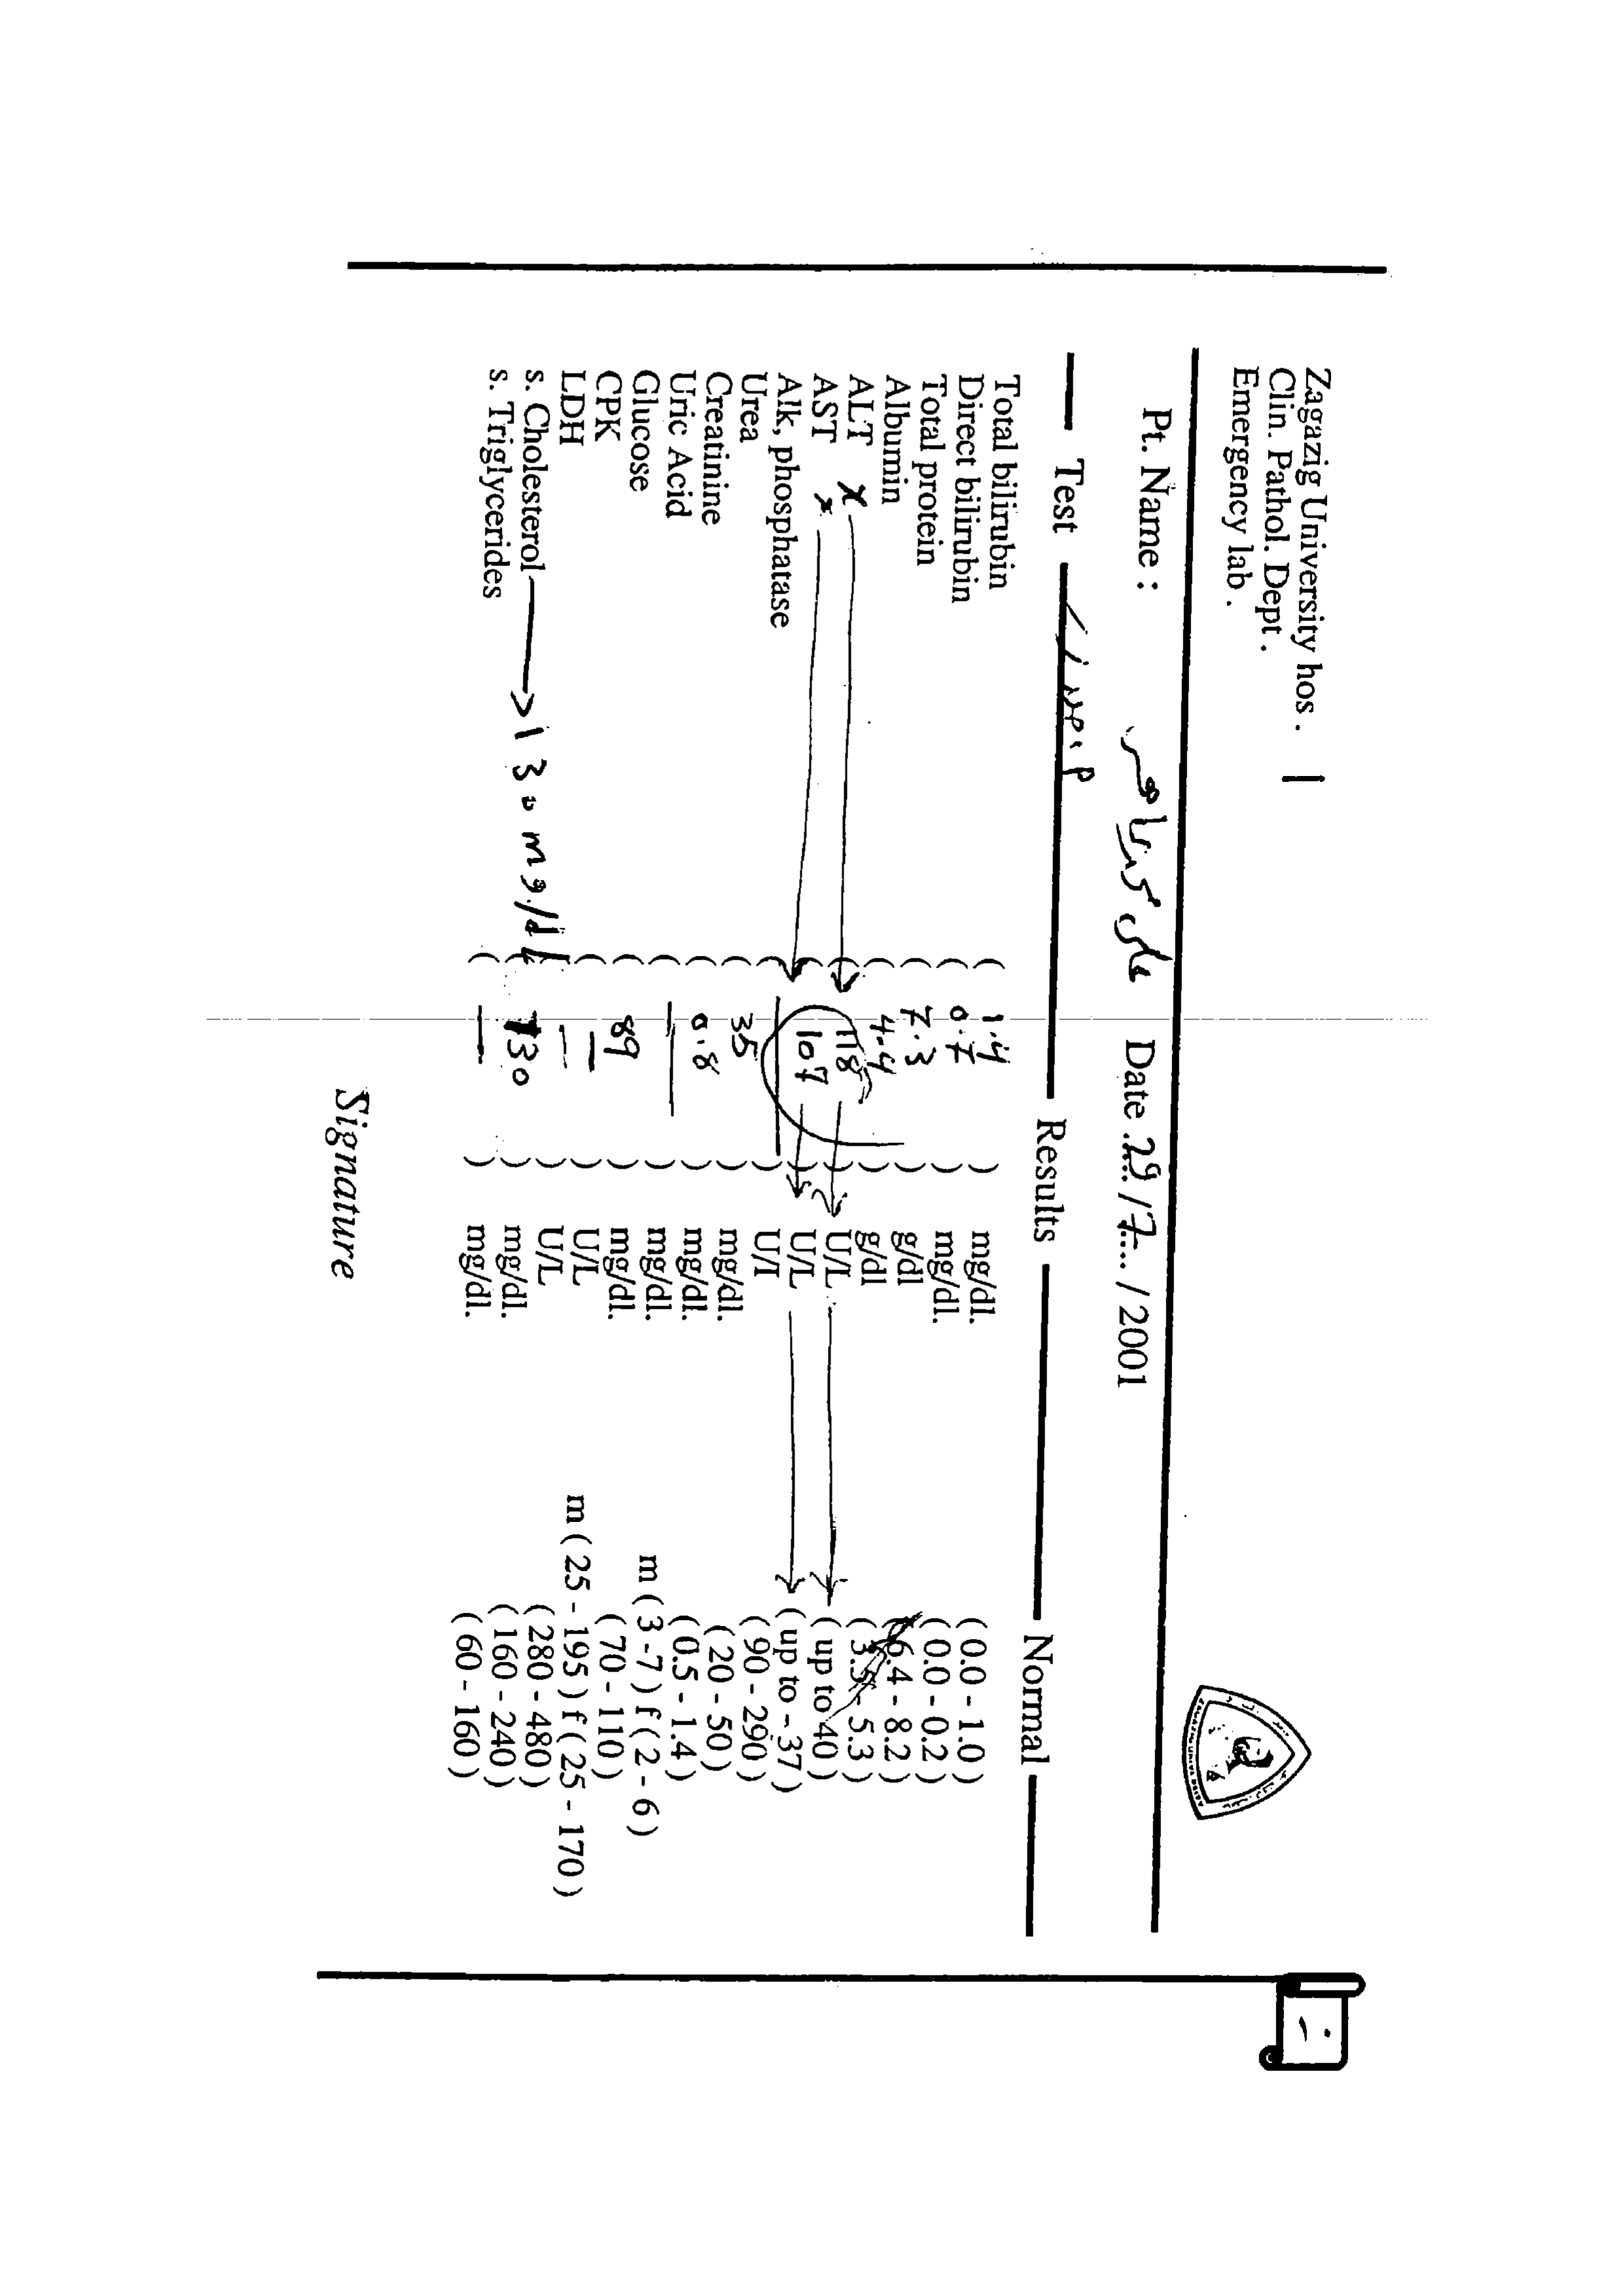 Zagazig University hos .
Clin. Pathol. Dept .
Emergency lab .
Pt. Name : على Date 29 / 7 / 2001
Test Results Normal
Total bilirubin ( 1.4 ) mg/dl. ( 0.0 - 1.0 )
Direct bilirubin ( 0.7 ) mg/dl. ( 0.0 - 0.2 )
Total protein ( 7.3 ) g/dl ( 6.4 - 8.2 )
Albumin ( 4.4 ) g/dl ( 3.5 - 5.3 )
ALT x ( 118 ) U/L ( up to 40 )
AST x ( 107 ) U/L ( up to - 37 )
Alk, phosphatase ( — ) U/I ( 90 - 290 )
Urea ( 35 ) mg/dl. ( 20 - 50 )
Creatinine ( 0.8 ) mg/dl. ( 0.5 - 1.4 )
Uric Acid ( — ) mg/dl. m ( 3 -7 ) f ( 2 - 6 )
Glucose ( 89 ) mg/dl. ( 70 - 110 )
CPK ( — ) U/L m ( 25 - 195 ) f ( 25 - 170 )
LDH ( — ) U/L ( 280 - 480 )
s. Cholesterol → 130 mg/dL ( 130 ) mg/dl. ( 160 - 240 )
s. Triglycerides ( — ) mg/dl. ( 60 - 160 )
Signature